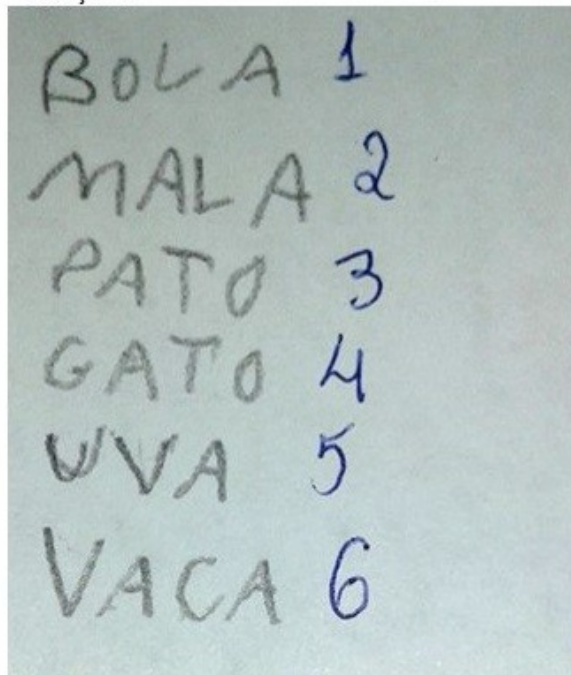 BOLA 1
MALA 2
PATO 3
GATO 4
UVA 5
VACA 6